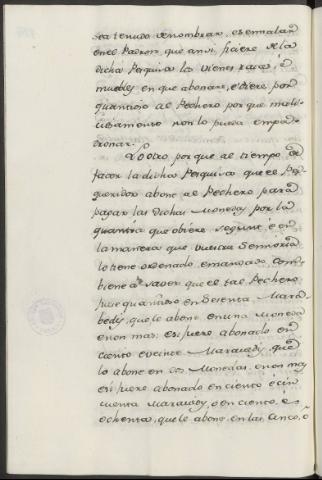 sea tenudo de nombrar, e señalar
en el Padron, que ansi ficiere de la
dicha Pesquisa los vienes raices, è
muebles en que abonare, è diere por
quantioso al Pechero por que mali-
ciosamente non lo pueda empa-
dronar.
Lo otro, porque al tiempo de
facer la dicha Pesquisa que el Pes-
queridor abone al Pechero para
pagar las dichas Monedas por la
quantia que obiere segunt è en
la manera que vuestra Señoria
lo tiene ordenado, e mandado, Com-
biene à saver que el tal Pechero
fuere quantioso en Sesenta Mara-
bedis, que le abone en una Moneda
è non mas: è si fuere abonado en
ciento è veinte Maravedis, que
lo abone en dos Monedas, è non mas
è si fuere abonado en ciento è cin-
cuenta Maravedis, ò en ciento, è
ochenta, que le abone en las cinco, ò